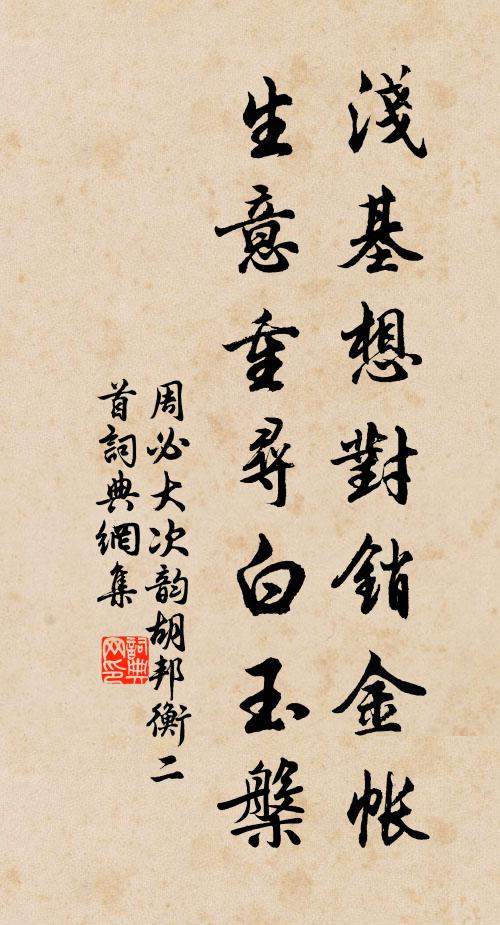 淺基想對銷金帳
生意重尋白玉槃
周必大次韵胡邦衡二
首詞典網集
詞典
网印